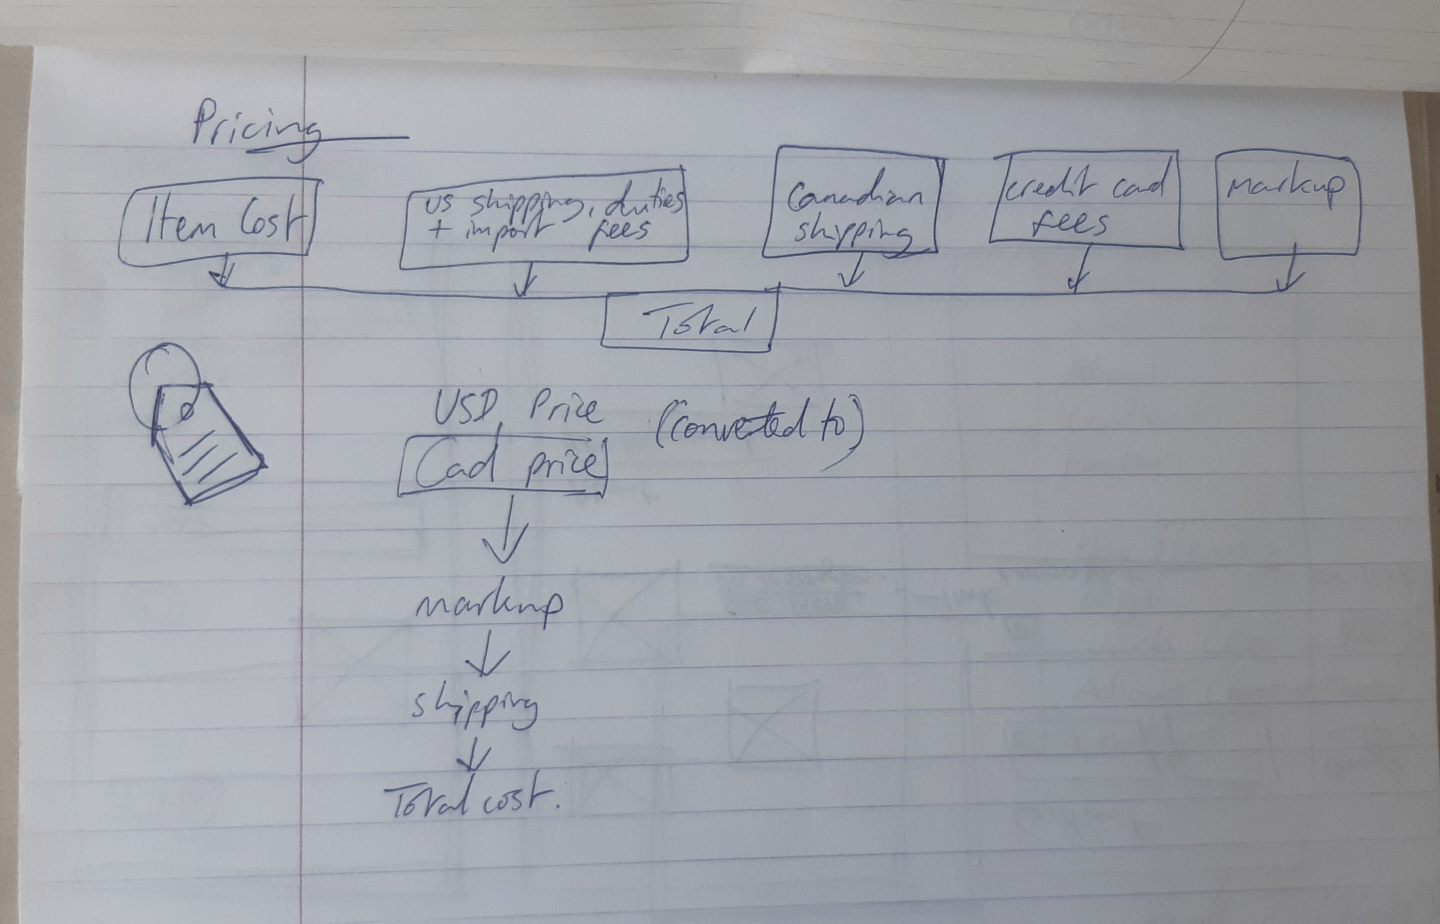 Pricing
Item Cost
US shipping, duties
+ import fees
Canadian
shipping
credit card
fees
markup
Total
USD Price (converted to)
Cad price
markup
shipping
Total cost.